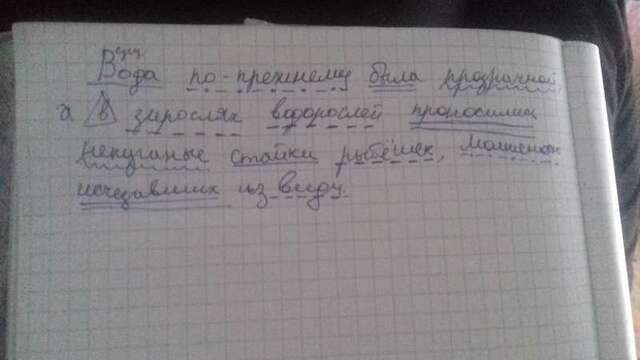 сущ.
Вода по-прежнему была прозрачной,
а в зарослях водорослей проносились
непуганые стайки рыбёшек, мгновенно
исчезавших из виду.